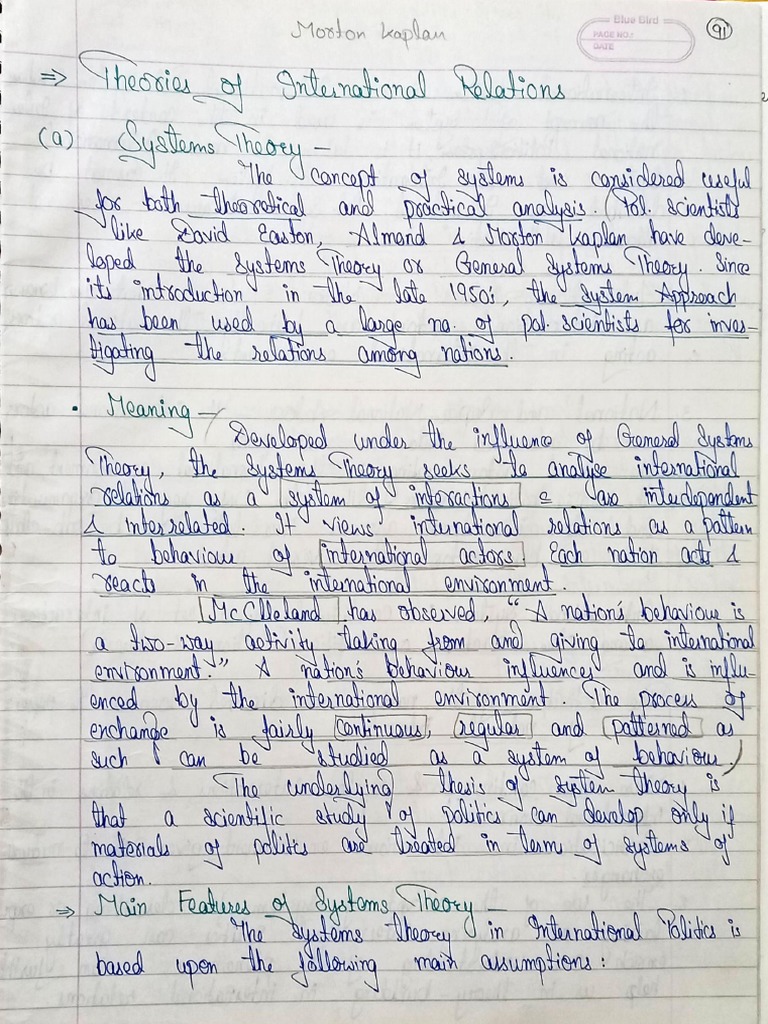 Morton Kaplan
Blue Bird
PAGE NO.:
DATE
91
⇒ Theories of International Relations
(a) Systems Theory –
The concept of systems is considered useful
for both theoretical and practical analysis. Pol. scientists
like David Easton, Almond & Morton Kaplan have deve-
loped the Systems Theory or General Systems Theory. Since
its introduction in the late 1950s, the System Approach
has been used by a large no. of pol. scientists for inves-
tigating the relations among nations.
• Meaning –
Developed under the influence of General Systems
Theory, the Systems Theory seeks to analyse international
relations as a system of interactions c are interdependent
& interrelated. It views international relations as a pattern
to behaviour of international actors. Each nation acts &
reacts in the international environment.
McClleland has observed, "A nation's behaviour is
a two-way activity taking from and giving to international
environment." A nation's behaviour influences and is influ-
enced by the international environment. The process of
exchange is fairly continuous, regular and patterned as
such can be studied as a system of behaviour.
The underlying thesis of system theory is
that a scientific study of politics can develop only if
materials of politics are treated in term of systems of
action.
⇒ Main Features of Systems Theory –
The systems theory in International Politics is
based upon the following main assumptions: